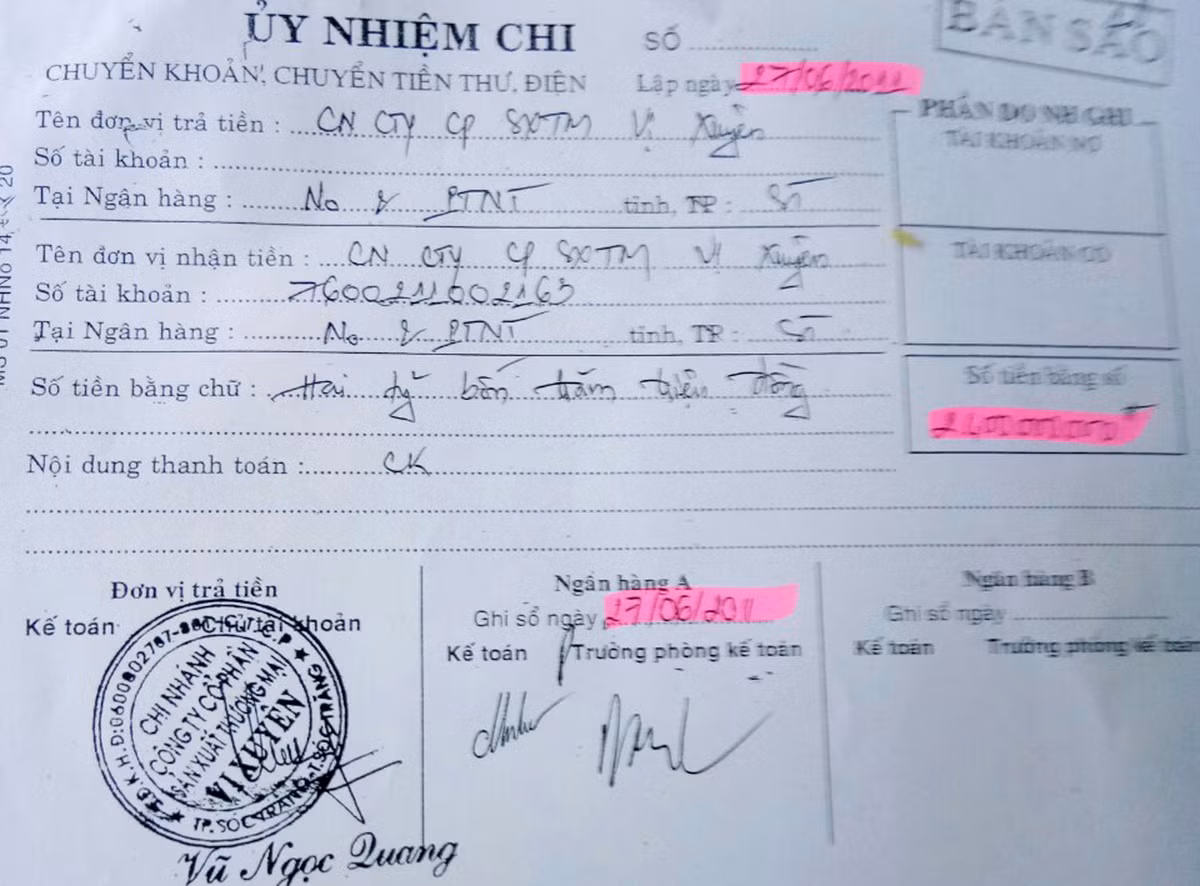 ỦY NHIỆM CHI
SỐ
BẢN SAO
CHUYỂN KHOẢN, CHUYỂN TIỀN THƯ, ĐIỆN
Lập ngày 27/06/2011
PHẦN DO NH GHI
Tên đơn vị trả tiền : CN CTY CP SXTM Vị Xuyên
TÀI KHOẢN NỢ
Số tài khoản :
Tại Ngân hàng : No & PTNT tỉnh, TP : ST
Tên đơn vị nhận tiền : CN CTY CP SXTM Vị Xuyên
TÀI KHOẢN CÓ
Số tài khoản : 7600211002163
Tại Ngân hàng : No & PTNT tỉnh, TP : ST
Số tiền bằng chữ : Hai tỷ bốn trăm triệu đồng
Số tiền bằng số
2400000000đ
Nội dung thanh toán : CK
Đơn vị trả tiền
Kế toán Chủ tài khoản
Ngân hàng A
Ghi sổ ngày 27/06/2011
Kế toán Trưởng phòng kế toán
Ngân hàng B
Ghi sổ ngày
Kế toán Trưởng phòng kế toán
CHI NHÁNH
CÔNG TY CỔ PHẦN
SẢN XUẤT THƯƠNG MẠI
VỊ XUYÊN
TP.SÓC TRĂNG-T.SÓC TRĂNG
Vũ Ngọc Quang